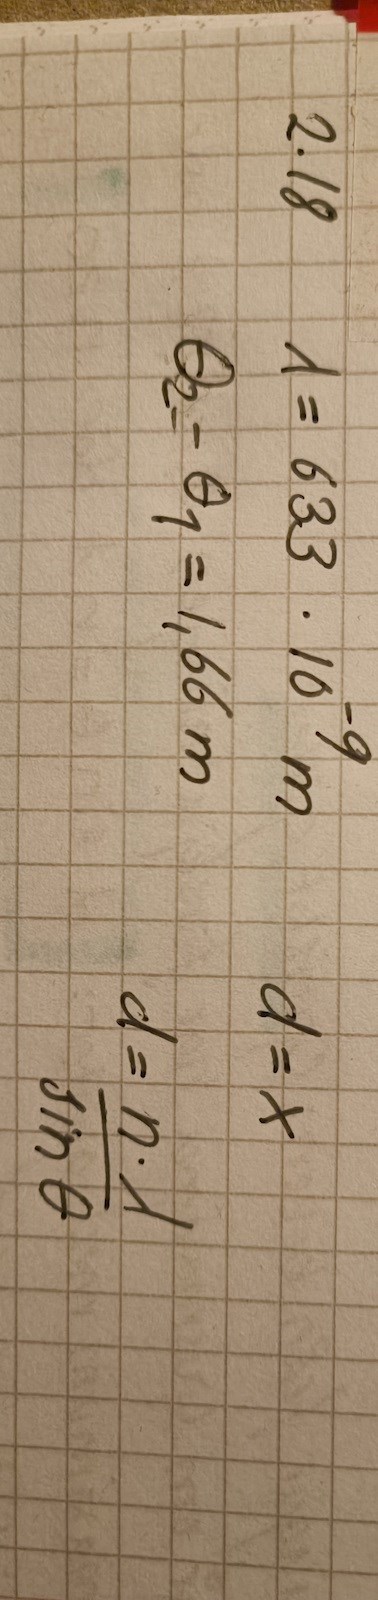 2.18 λ = 633 · 10⁻⁹ m d = x
θ₂ - θ₁ = 1,66 m
d = n · λ
sin θ